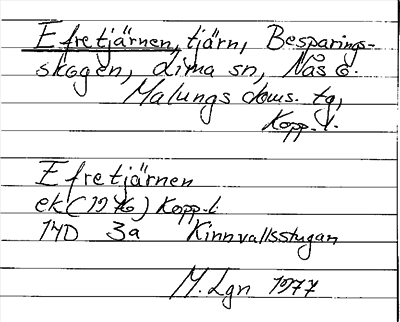 Efretjärnen, tjärn, Besparings-
skogen, Lima sn, Nås o.
Malungs doms. tg,
Kopp. l.
Efretjärnen
ek (1976) Kopp. l.
14D 3a Kinnvallsstugan
M. Lgn 1977